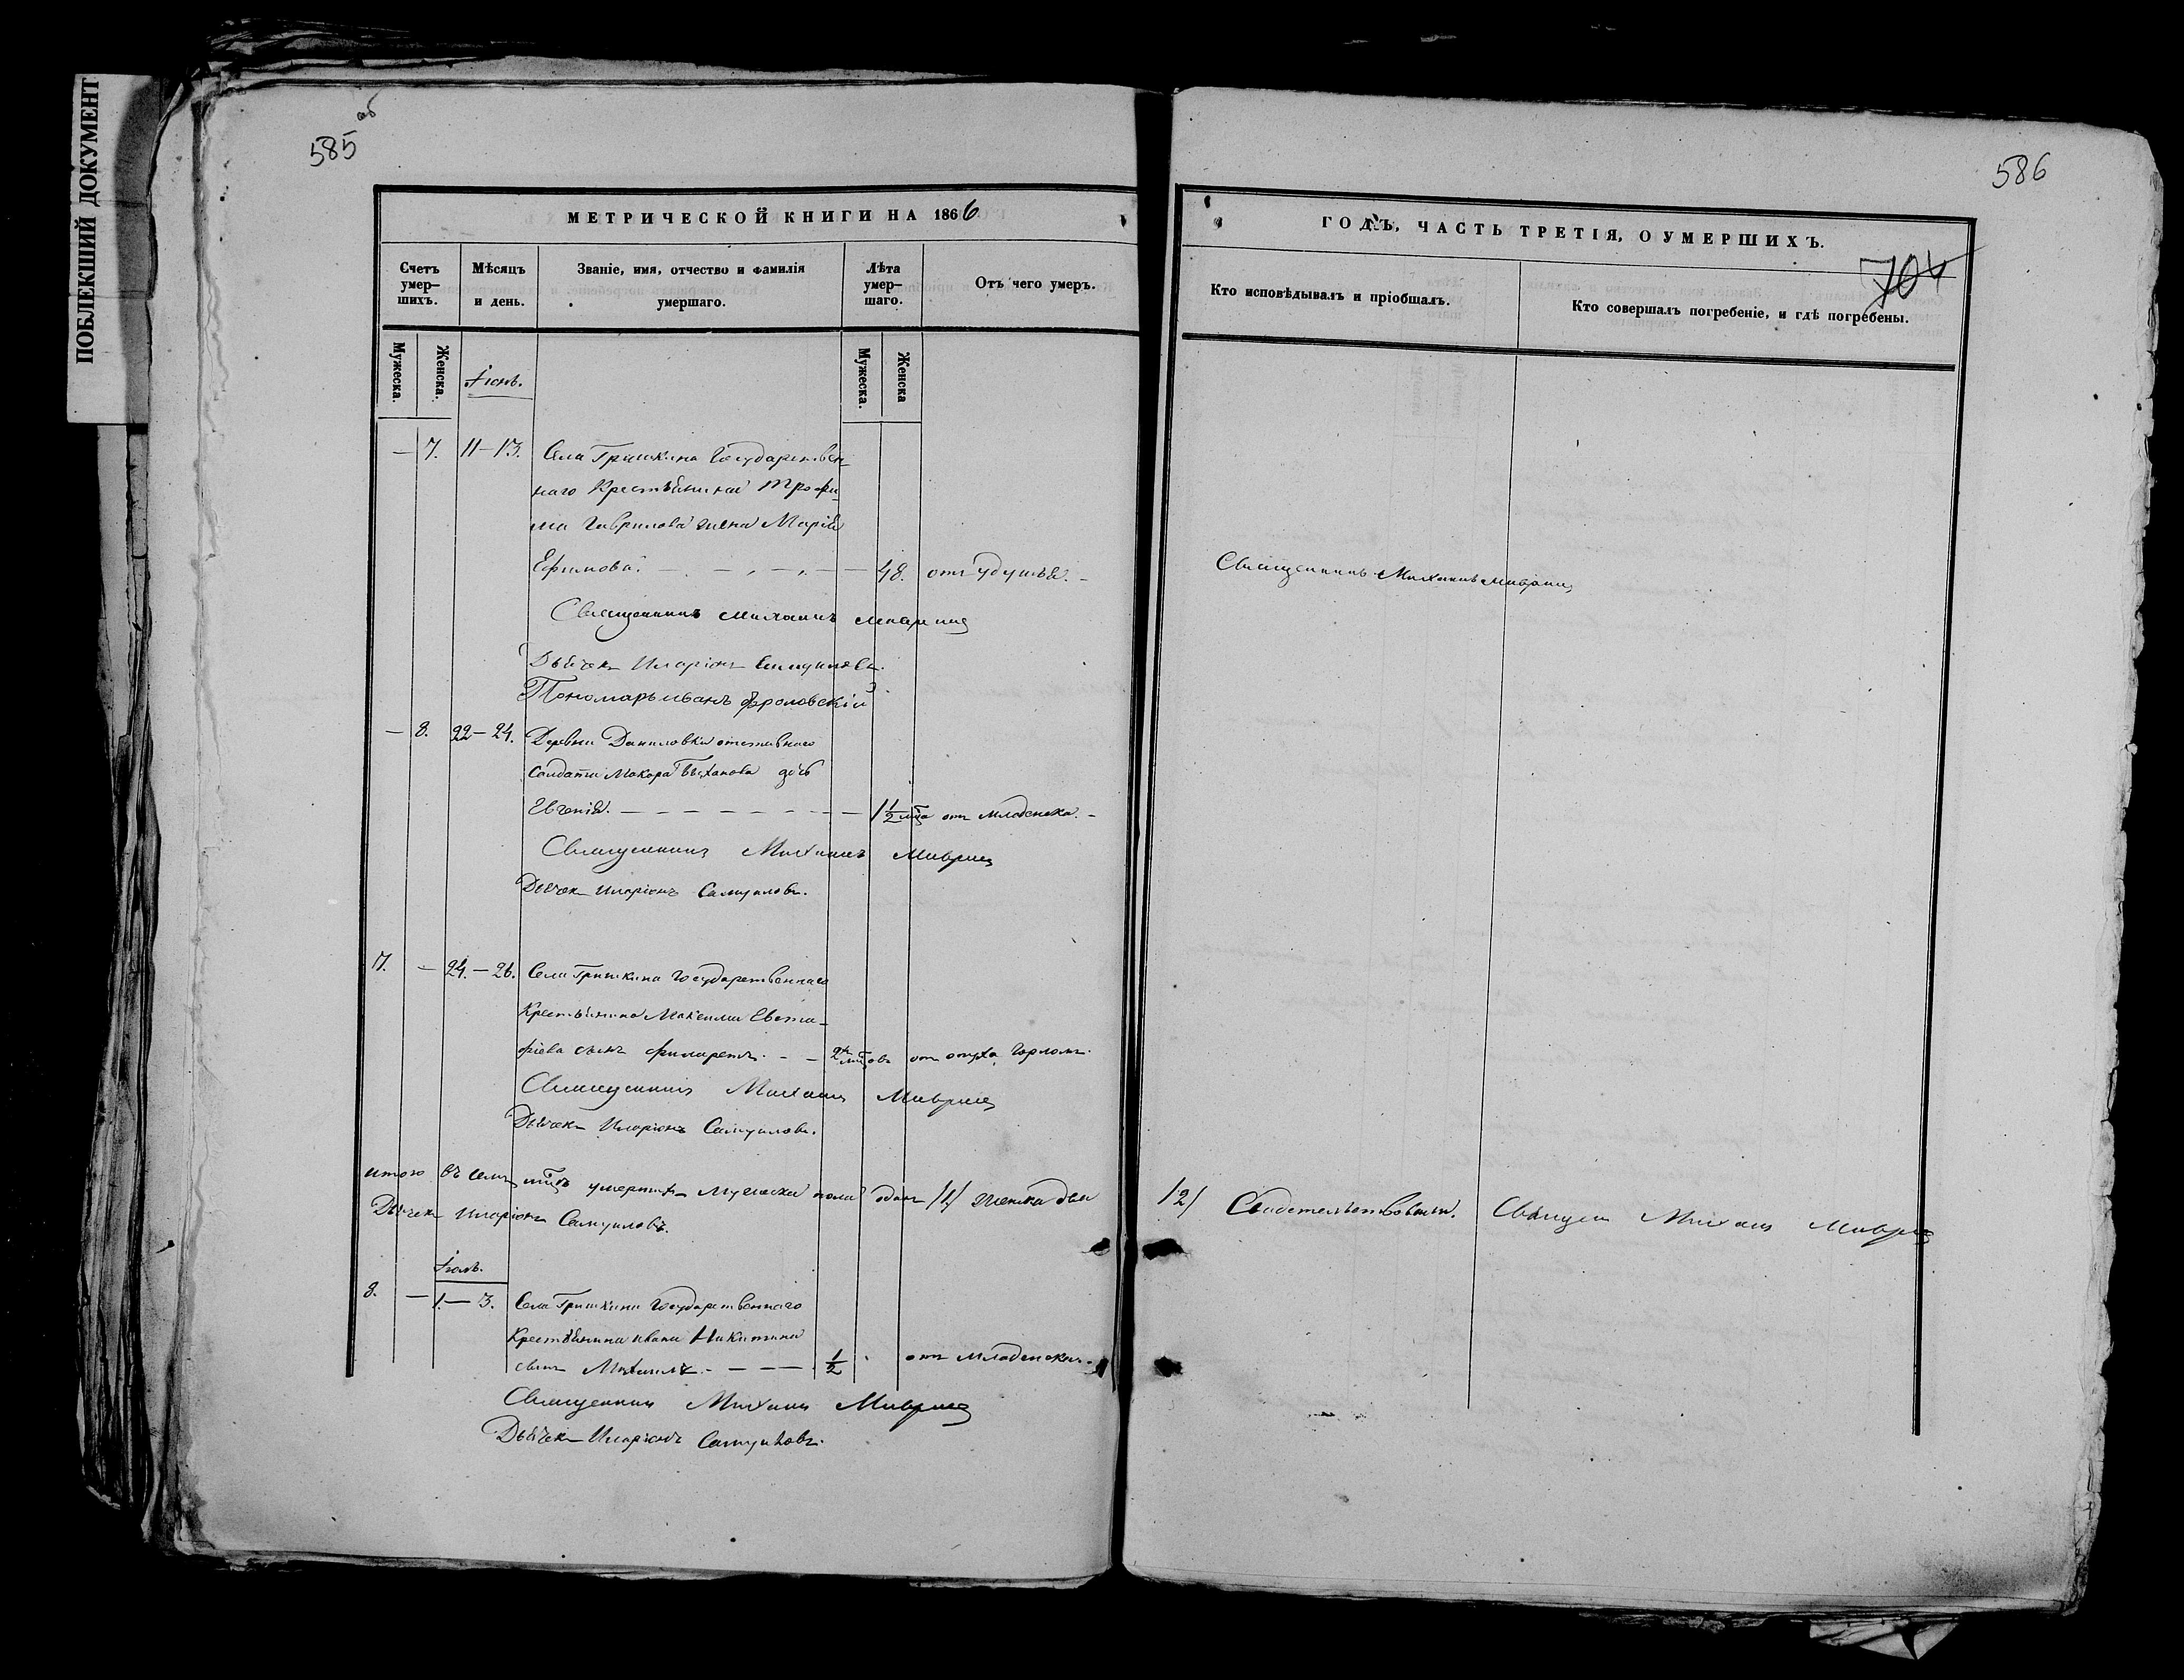 ПОБЛЕКШИЙ ДОКУМЕНТ
585 об
МЕТРИЧЕСКОЙ КНИГИ НА 1866
Счетъ умер-шихъ.
Мѣсяцъ и день.
Званіе, имя, отчество и фамилія умершаго.
Лѣта умер-шаго.
Отъ чего умеръ.
Мужеска.
Женска.
Мужеска.
Женска
Іюнь.
— 7. 11–13. Села Гришкина Государствен-
наго Крестьянина Трофи-
ма Гаврилова жена Марія
Ефимова. 48. отъ удушья.
Священникъ Михаилъ
Дьячекъ Иларіонъ Самуиловъ.
Пономарь Иванъ Фроловскій
— 8. 22–24. Деревни Даниловки отставнаго
Солдата Макара дочь
Евгенія. 1 1/2 мца отъ младенска.
Священникъ Михаилъ
Дьячекъ Иларіонъ Самуиловъ.
7. — 24.–26. Села Гришкина Государственнаго
Крестьянина Максима Евста-
фіева сынъ Филаретъ. 2хъ мцовъ отъ горломъ.
Священникъ Михаилъ
Дьячекъ Иларіонъ Самуиловъ.
итого въ семъ мцѣ умершихъ мужеска пола одинъ /1/ женска два
Дьячекъ Иларіонъ Самуиловъ.
Іюль.
8. — 1.–3. Села Гришкина Государственнаго
Крестьянина Ивана Никитина
сынъ Михаилъ. 1/2 отъ младенска.
Священникъ Михаилъ
Дьячекъ Иларіонъ Самуиловъ.
586
ГОДЪ, ЧАСТЬ ТРЕТІЯ, О УМЕРШИХЪ.
704
Кто исповѣдывалъ и пріобщалъ.
Кто совершалъ погребеніе, и гдѣ погребены.
Священникъ Михаилъ
/2/ Свидетельствовалъ. Священ Михаилъ